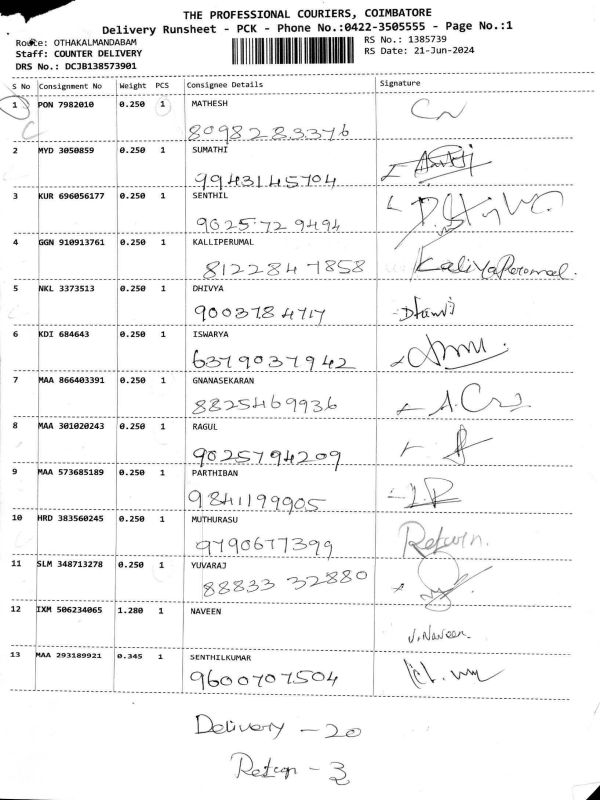 THE PROFESSIONAL COURIERS, COIMBATORE
Delivery Runsheet - PCK - Phone No.:0422-3505555 - Page No.:1
Route: OTHAKALMANDABAM RS No.: 1385739
Staff: COUNTER DELIVERY RS Date: 21-Jun-2024
DRS No.: DCJB138573901
S No Consignment No Weight PCS Consignee Details Signature
1 PON 7982010 0.250 1 MATHESH
8098283376
2 MYD 3050859 0.250 1 SUMATHI
9943145704
3 KUR 696056177 0.250 1 SENTHIL
9025729494
4 GGN 910913761 0.250 1 KALLIPERUMAL
8122847858 KaliyaPerumal.
5 NKL 3373513 0.250 1 DHIVYA
9003784717
6 KDI 684643 0.250 1 ISWARYA
6379037942
7 MAA 866403391 0.250 1 GNANASEKARAN
8825469936
8 MAA 301020243 0.250 1 RAGUL
9025794209
9 MAA 573685189 0.250 1 PARTHIBAN
9841199905
10 HRD 383560245 0.250 1 MUTHURASU
9790677399 Return.
11 SLM 348713278 0.250 1 YUVARAJ
88833 32880
12 IXM 506234065 1.280 1 NAVEEN
J.Naveen
13 MAA 293189921 0.345 1 SENTHILKUMAR
9600707504
Delivery - 20
Retern - 3